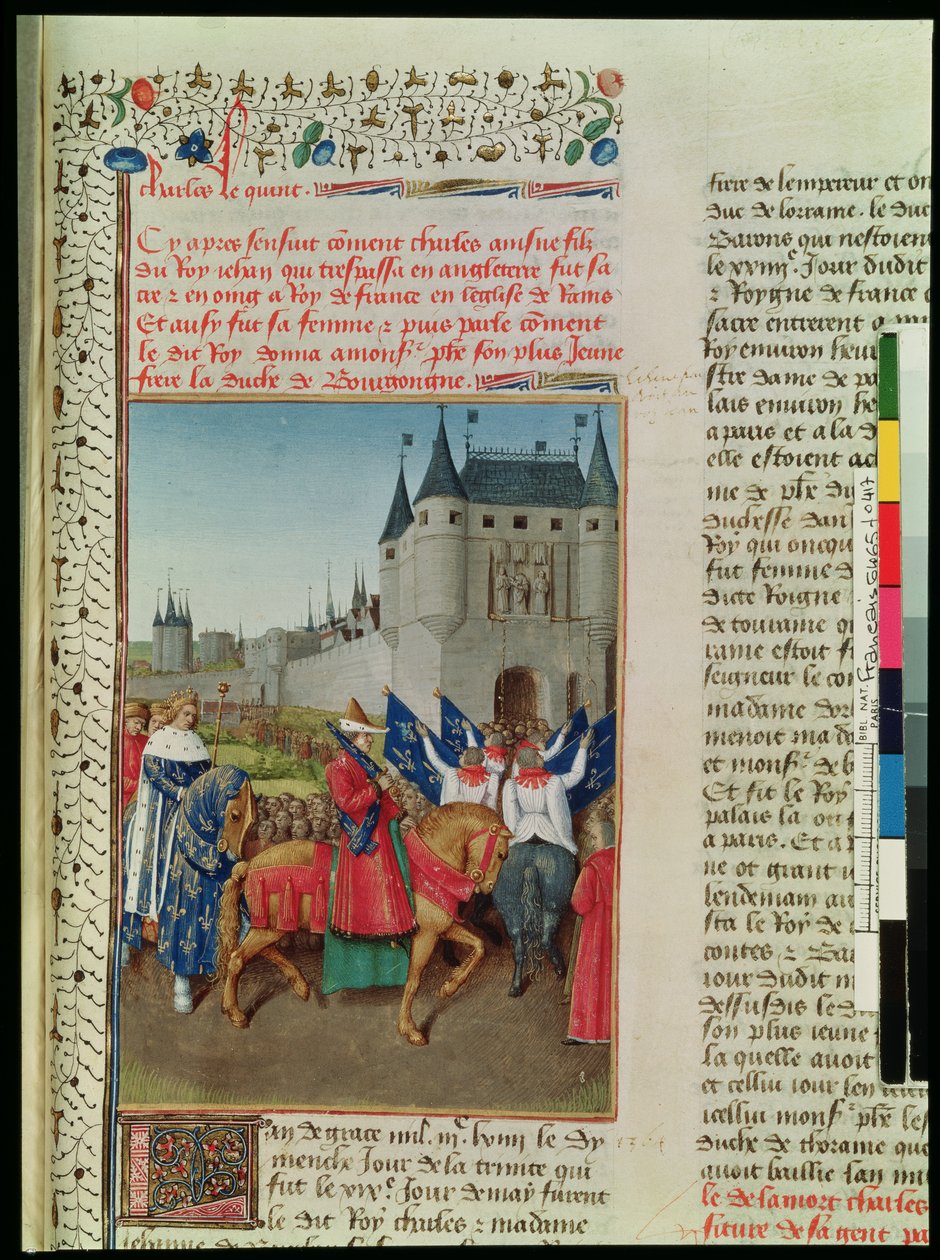 Charles le quint.
Cy apres sensuit cōment charles aisne filz
du Roy iehan qui trespassa en angleterre fut sa
cre ⁊ en oing a Roy de france en leglise de Rains
Et aussy fut sa femme ⁊ puis parle cōment
le dit Roy donna a monsr phe son plus Jeune
frere la duche de Bourgongne.
an de grace mil. iiic. lxiiii le dy
menche Jour de la trinite qui
fut le xixe. Jour de may furent
le dit Roy charles ⁊ madame
frere de lempereur et
duc de lorraine. le duc
Barons qui nestoient
le xxiiiie. Jour dudit
⁊ Roygne de france
sacre entrerent a
Roy environ
stre dame de pa
lais environ
a paris et a la d
elle estoient
me de phe du
duchesse dan
Roy qui oncq
fut femme d
dicte Roigne
de touraine
raine estoit f
seigneur le co
madame
menoit ma da
et monsr de b
Et fit le Roy
palais la ou
a paris. Et a p
ne ot grant
lendemain au
sta le Roy de
contes ⁊ Ba
iour dudit m
dessusdis le d
son plus ieune
la quelle avoit
et cellui iour
icellui monsr phe
duche de thoraine que
avoit baillie lan
le de la mort charles
future de sa gent pa
BIBL. NAT.
PARIS
Français 6465 fo 417